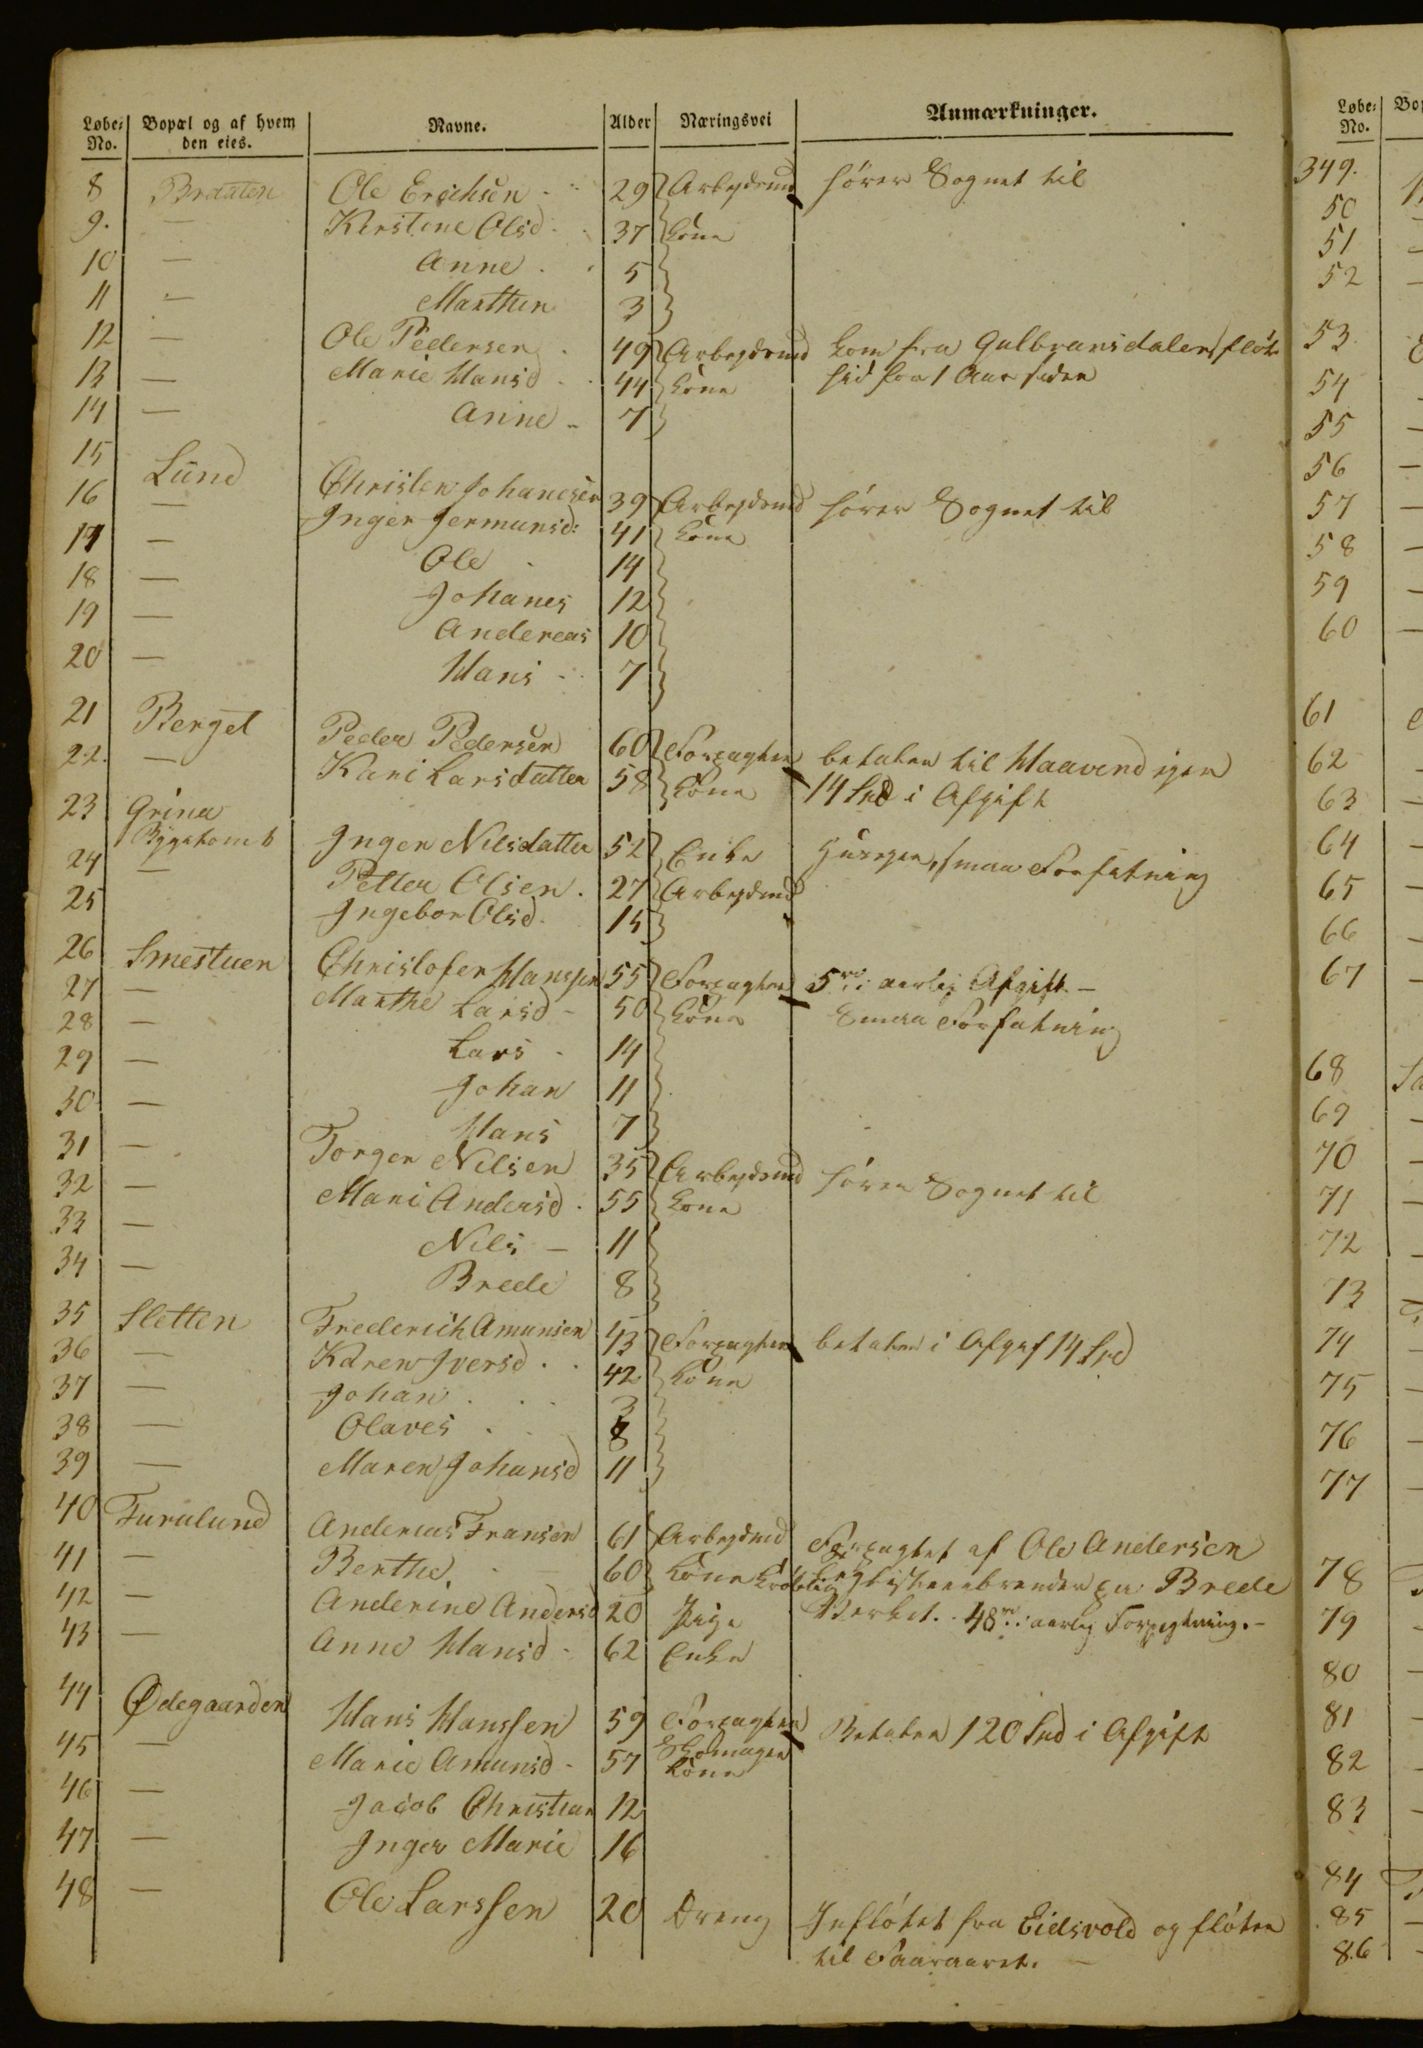 Løbe- No. Bopæl og af hvem den eies. Navne. Alder Næringsvei Anmærkninger.
8 Bratten Ole Erichsen 29 Arbejdsmd hører Sognet til
9. — Kerstine Olsd. 37 Kone
10 — Anne 5
11 — Marthen 3
12 — Ole Pedersen 49 Arbejdsmd kom fra Gulbransdalen, fløt
13 — Marie Hansd 44 Kone hid for 1 Aar siden
14 — Anne 7
15 Lund Christen Johanesen 39 Arbejdsmd hører Sognet til
16 — Inger Jermunsd: 41 Kone
17 — Ole 14
18 — Johanes 12
19 — Andereas 10
20 — Hans 7
21 Berget Peder Pedersen 60 Forpagter betaler til Haavend igen
22. — Kari Larsdatter 58 Kone 14 Spd i Afgift
23 Grina Inger Nilsdatter 52 Enke smaa Forfatning
24 — Petter Olsen. 27 Arbejdsmd
25 Ingebor Olsd. 15
26 Smestuen Christofer Hanssen 55 Forpagter 5 i aarlig Afgift —
27 — Marthe Larsd - 50 Kone Smaa Forfatning
28 — Lars 14
29 — Johan 11
30 — Hans 7
31 — Torger Nilsen 35 Arbejdsmd hører Sognet til
32 — Mari Andersd. 55 Kone
33 — Nils — 11
34 — Brede 8
35 Sletten Frederich Amunsen 43 Forpagter betaler i Afgif 14 Spd
36 — Karen Iversd. 42 Kone
37 — Johan 3
38 — Olaves 8
39 — Maren Johansd 11
40 Furulund Andereas Fransen 61 Arbejdmd Forpagtet af Ole Andersen
41 — Berthe 60 Kone paa Brede
42 — Anderine Andersd 20 Pige Verket. 48 i aarlig Forpagtning. —
43 — Anne Hansd - 62 Enke
44 Ødegaarden Hans Hanssen 59 Forpagter Betaler 120 Spd i Afgift
45 — Marie Amunsd - 57 Skomager Kone
46 — Jacob Christian 12
47 — Inger Marie 16
48 — Ole Larssen 20 Dreng Infløtet fra Eidsvold og fløter
til Faaraaret. —
Løbe- No. Bop
349.
50
51
52
53
54
55
56
57
58
59
60
61
62
63
64
65
66
67
68
69
70
71
72
73
74
75
76
77
78
79
80
81
82
83
84
85
86